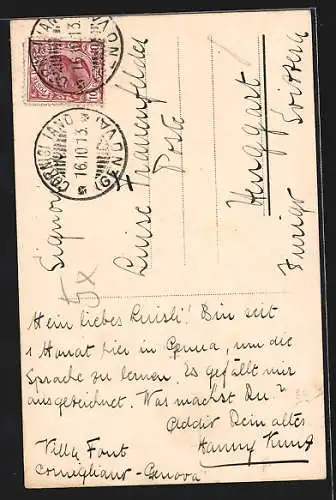 CORNIGLIANO
16.10.13.
(GENOVA)
Signorina
Luise Frauenfelder
Poste
Henggart
Zurigo Svizzera
5x
Mein liebes Luisli! Bin seit
1 Monat hier in Genua, um die
Sprache zu lernen. Es gefällt mir
ausgezeichnet. Was machst Du?
Addio Dein altes
Hanny Kunz
Villa Font
Cornigliano - Genova